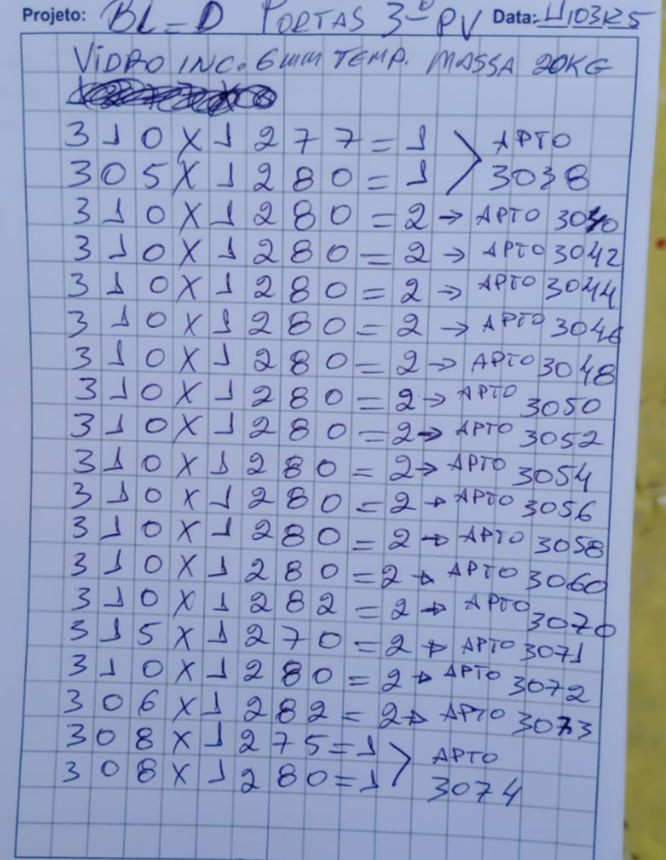 Projeto: BL=D PORTAS 3º PV Data: 11/03/25
VIDRO INC. 6MM TEMP. MASSA 20KG
310X1277=1 > APTO
305X1280=1 3038
310X1280=2 → APTO 3040
310X1280=2 → APTO 3042
310X1280=2 → APTO 3044
310X1280=2 → APTO 3046
310X1280=2 → APTO 3048
310X1280=2 → APTO 3050
310X1280=2 → APTO 3052
310X1280=2 → APTO 3054
310X1280=2 → APTO 3056
310X1280=2 → APTO 3058
310X1280=2 → APTO 3060
310X1282=2 → APTO 3070
315X1270=2 → APTO 3071
310X1280=2 → APTO 3072
306X1282=2 → APTO 3073
308X1275=1 > APTO
308X1280=1 3074